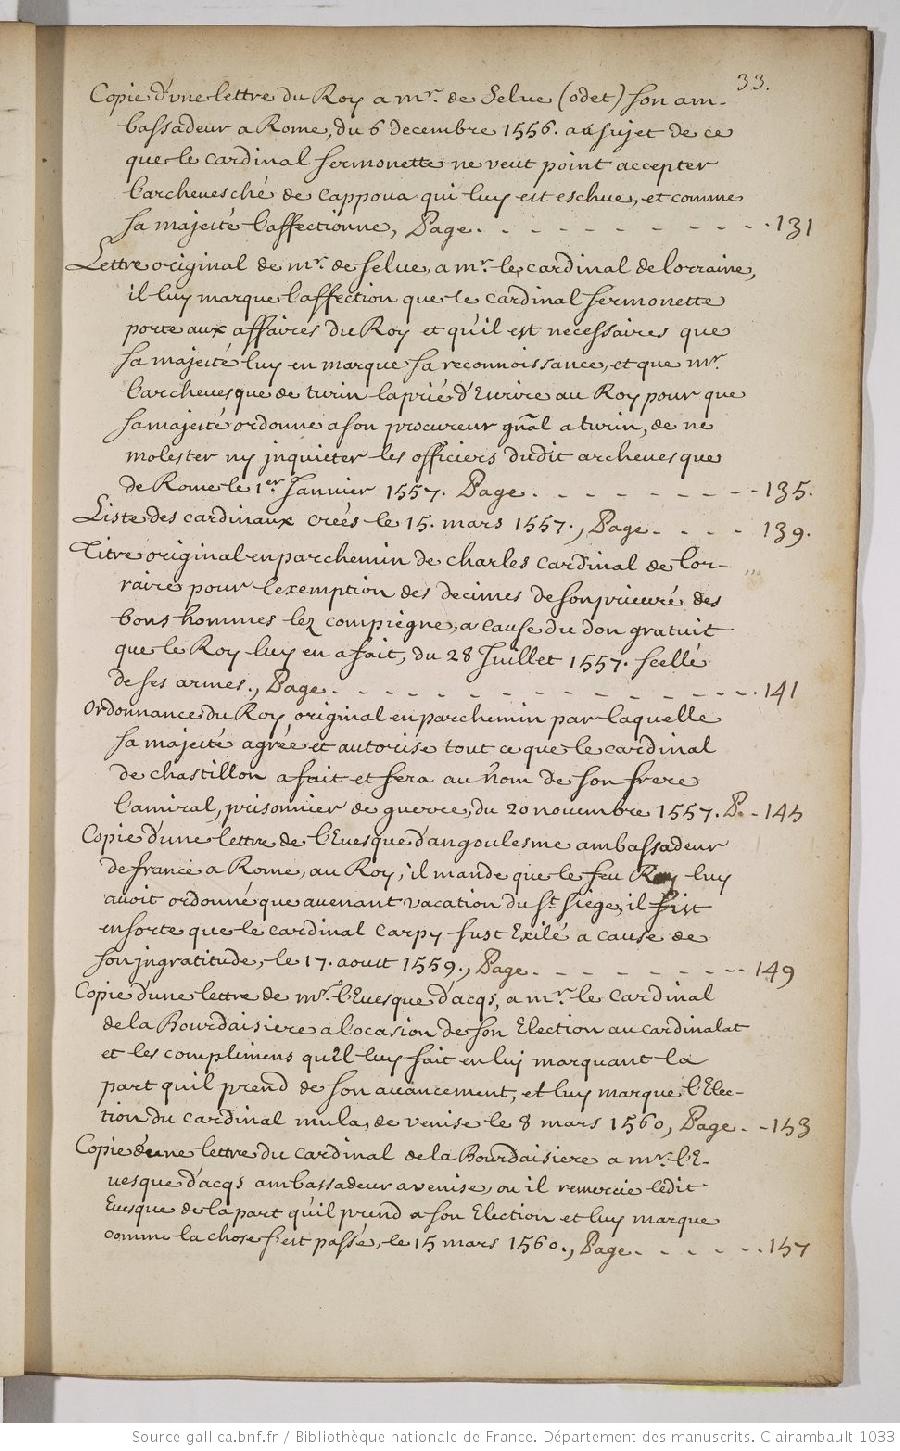 33.
Copie d'vne lettre du Roy a mr. de Selue (odet) son am-
bassadeur a Rome, du 6 decembre 1556. au sujet de ce
que le cardinal sermonette ne veut point accepter
l'archeuesché de cappoua qui luy est eschue, et comme
sa majesté l'affectionne, Page. - - - - - - - - - - 131
Lettre original de mr. de selue, a mr. le cardinal de lorraine,
il luy marque l'affection que le cardinal sermonette
porte aux affaires du Roy et qu'il est necessaires que
sa majesté luy en marque sa reconnoissance, et que mr.
l'archeuesque de turin la prié d'Ecrire au Roy pour que
sa majesté ordonne a son procureur gnãl a turin, de ne
molester ny jnquieter les officiers dudit archeuesque
de Rome le 1er. Januier 1557. Page. - - - - - - - 135.
Liste des cardinaux creés le 15. mars 1557., Page - - - - 139.
Titre original en parchemin de charles cardinal de lor-
raire pour l'exemption des decimes de son prieuré des
bons hommes lez compiegne, a cause du don gratuit
que le Roy luy en a fait, du 28 Juillet 1557. scellé
de ses armes., Page - - - - - - - - - - - - - - 141
Ordonnance du Roy, original en parchemin par laquelle
sa majesté agrée et autorise tout ce que le cardinal
de chastillon a fait et fera au nom de son frere
l'amiral, prisonnier de guerre, du 20 nouembre 1557. P. - 145
Copie d'une lettre de l'Euesque d'angoulesme ambassadeur
de france a Rome, au Roy, il mande que le feu Roy luy
auoit ordonné que auenant vacation du st. siege, il fist
ensorte que le cardinal Carpy fust Exilé a cause de
son jngratitude, le 17. aoust 1559., Page. - - - - - - - - 149
Copie d'une lettre de mr. l'Euesque d'acqs, a mr. le Cardinal
de la Bourdaisiere a l'ocasion de son Election au cardinalat
et les complimens qu'il luy fait en luj marquant la
part qu'il prend de son auancement, et luy marque l'Elec-
tion du cardinal mula, de venise le 8 mars 1560, Page. - 153
Copie d'une lettre du cardinal de la Bourdaisiere a mr. l'E-
uesque d'acqs ambassadeur a venise, ou il remercie ledit
Euesque de la part qu'il prend a son Election et luy marque
comme la chose s'est passé, le 15 mars 1560., Page. - - - - - 157
Source gallica.bnf.fr / Bibliothèque nationale de France. Département des manuscrits. Clairambault 1033